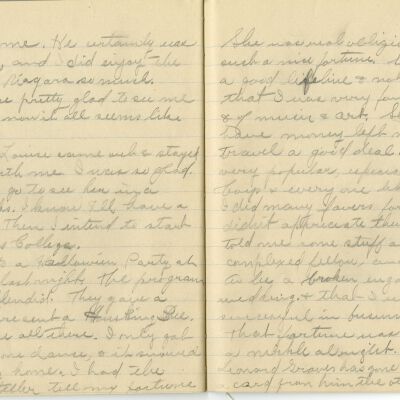 me. He certainly was
, and I did enjoy the
Niagara so much.
pretty glad to see me
now it all seems like
Louise came up & stayed
with me. I was so glad.
go to see her in a
I know I'll have a
Then I intend to start
College.
a Hallowe'en Party at
last night. The program
splendid. They gave a
represent a Husking Bee.
all there. I only got
one dance, & it snowed
home. I had the
teller tell my fortune
She was real obligin
such a nice fortune.
a good lifeline &
that I was very fon
& of music & art. S
have money left m
travel a good deal.
very popular, especia
boys & every one li
I did many favors for
didn't appreciate the
told me some stuff a
complexed fellow, an
to be a broken enga
wedding & that I'd
successful in busin
that fortune was
a nickle alright.
Leonard Graves has gone
card from him the ot